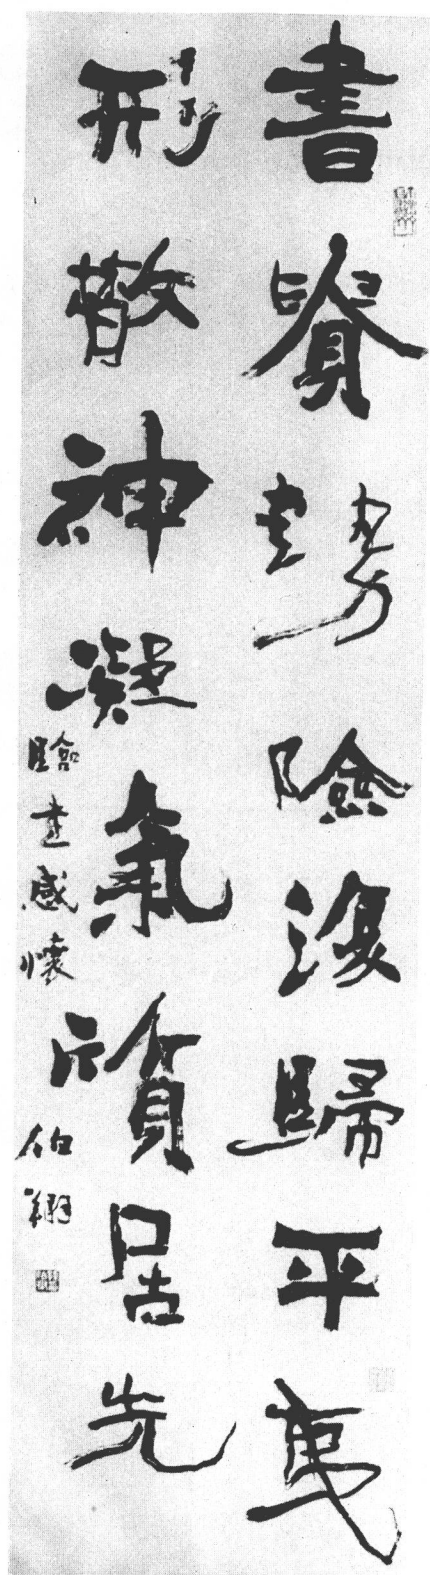 書勢險復歸平夷
形散神凝氣質居先
臨書感懷 伯翔